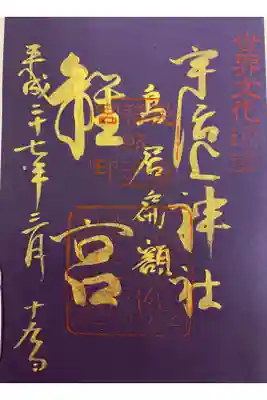 世界文化遺産
宇治上神社
鳥居扁額
離宮
平成二十七年二月十九日